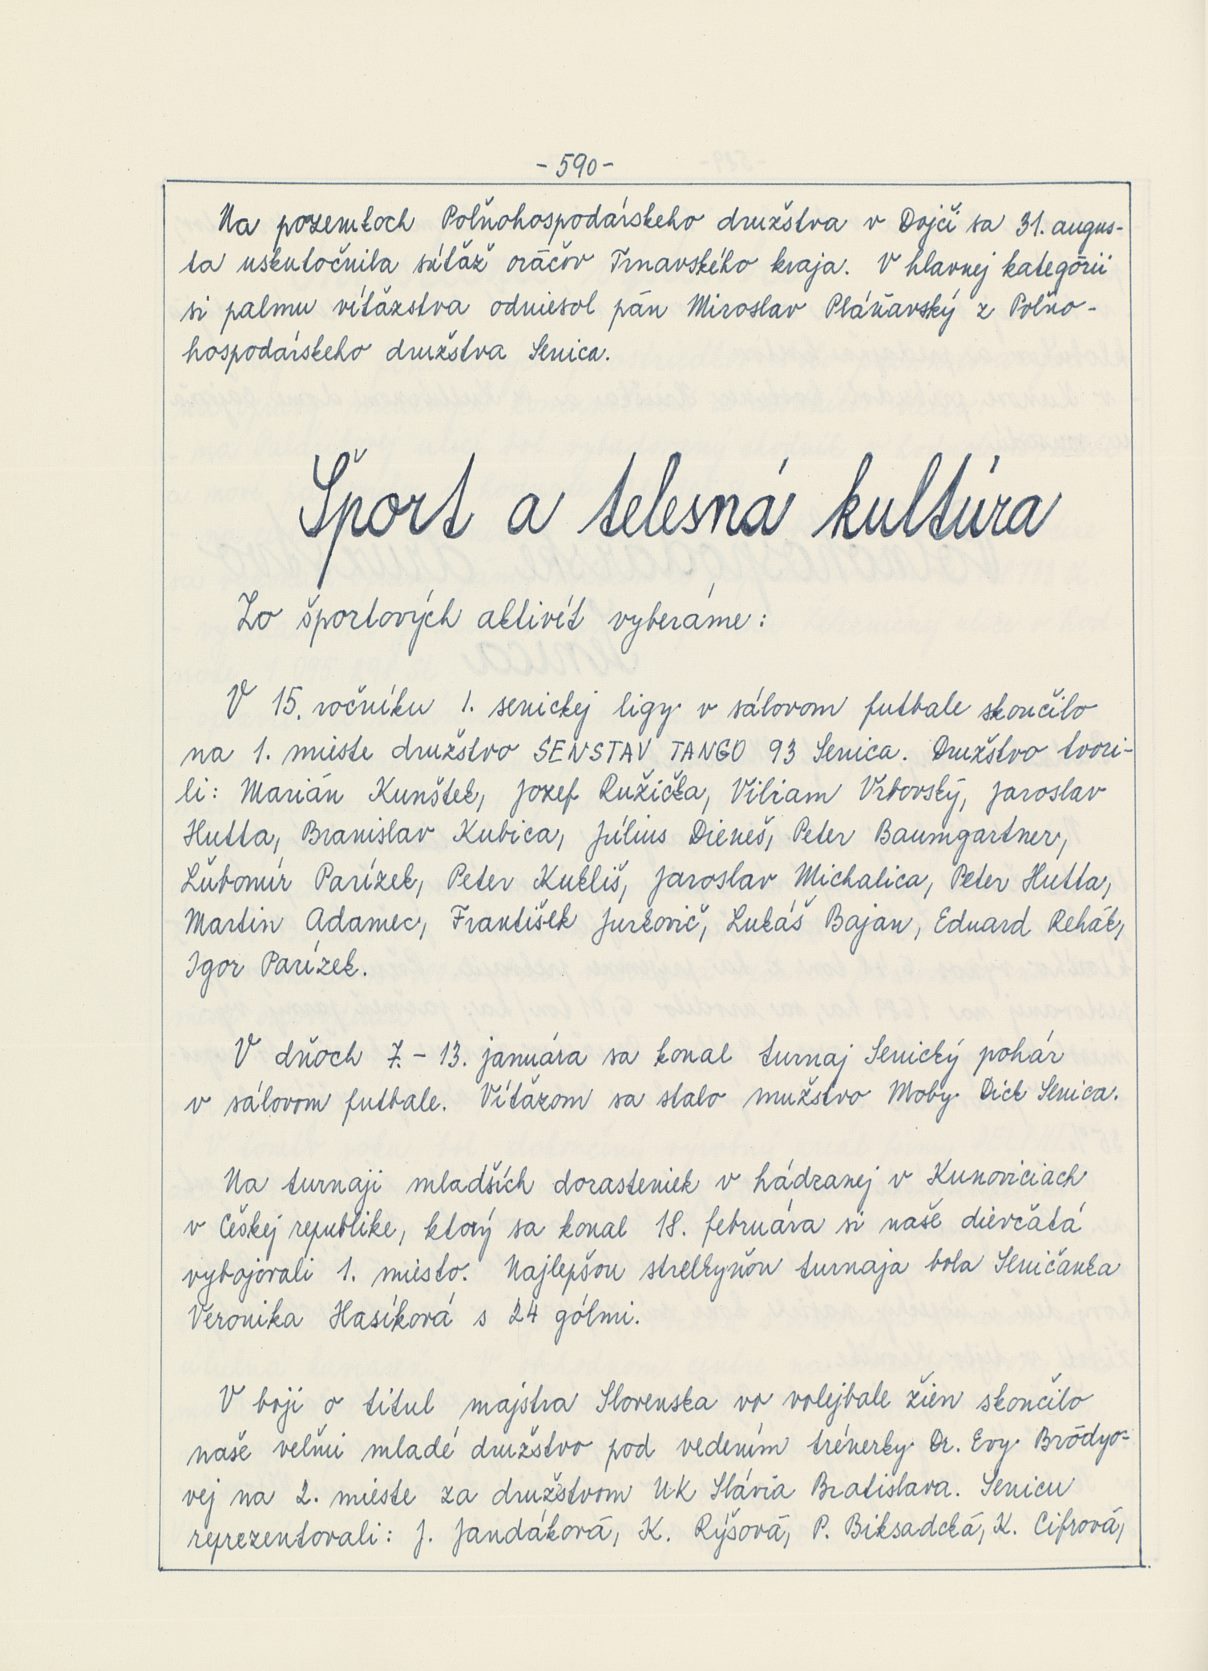 - 590 -
Na pozemkoch Poľnohospodárskeho družstva v Dojči sa 31. augus-
ta uskutočnila súťaž oráčov Trnavského kraja. V hlavnej kategórii
si palmu víťazstva odniesol pán Miroslav Pláňavský z Poľno-
hospodárskeho družstva Senica.
Šport a telesná kultúra
Zo športových aktivít vyberáme:
V 15. ročníku 1. senickej ligy v sálovom futbale skončilo
na 1. mieste družstvo SENSTAV TANGO 93 Senica. Družstvo tvori-
li: Marián Kunštek, Jozef Ružička, Viliam Vrbovský, Jaroslav
Hutta, Branislav Kubica, Július Dieneš, Peter Baumgartner,
Ľubomír Parízek, Peter Kukliš, Jaroslav Michalica, Peter Hutta,
Martin Adamec, František Jurkovič, Lukáš Bajan, Eduard Rehák,
Igor Parízek.
V dňoch 7. - 13. januára sa konal turnaj Senický pohár
v sálovom futbale. Víťazom sa stalo mužstvo Moby Dick Senica.
Na turnaji mladších dorasteniek v hádzanej v Kunoviciach
v Českej republike, ktorý sa konal 18. februára si naše dievčatá
vybojovali 1. miesto. Najlepšou strelkyňou turnaja bola Seničanka
Veronika Hasíková s 24 gólmi.
V boji o titul majstra Slovenska vo volejbale žien skončilo
naše veľmi mladé družstvo pod vedením trénerky Dr. Evy Bródyo-
vej na 2. mieste za družstvom UK Slávia Bratislava. Senicu
reprezentovali: J. Jandáková, K. Rýšová, P. Biksadská, K. Cifrová,